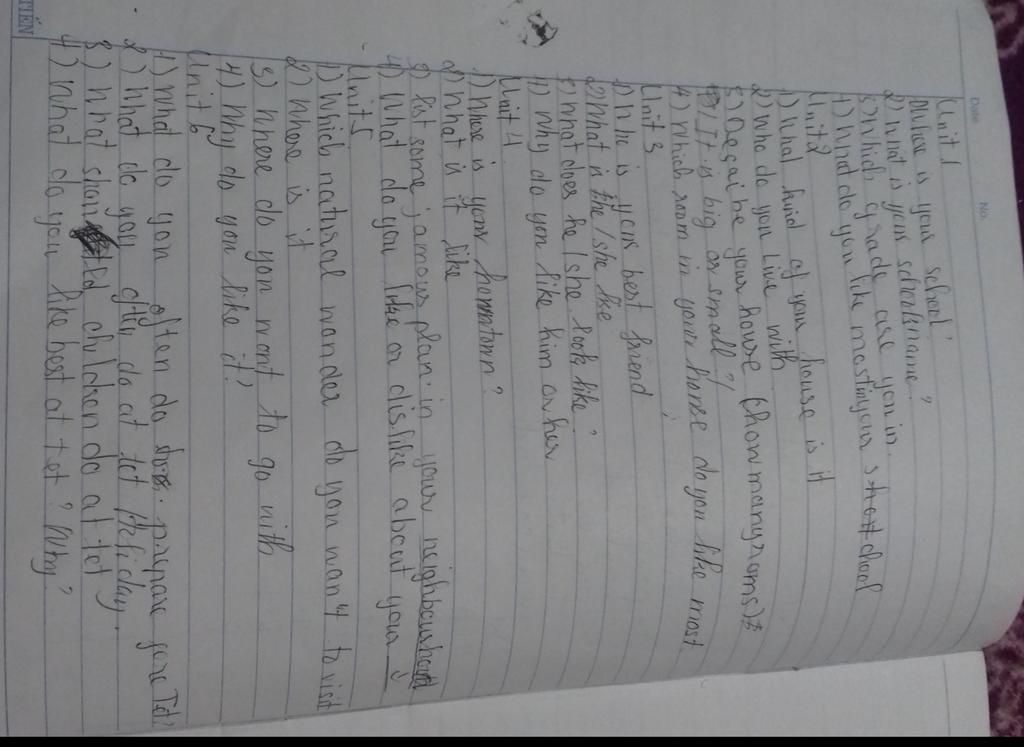 Date
No.
Unit 1
1) Where is your school?
2) What is your school name?
3) Which grade are you in.
4) What do you like most in your school
Unit 2
1) What kind of your house is it
2) Who do you live with
3) Describe your house (how many rooms)?
/ It is big or small?/
4) Which room in your house do you like most
Unit 3
1) Who is your best friend
2) What is the / she like
3) What does he / she look like?
4) Why do you like him or her
Unit 4
1) Where is your hometown?
2) What is it like
3) list some famous plan. in your neighbourhood
4) What do you like or dislike about your
Unit 5
1) Which natural wander do you want to visit
2) Where is it
3) Where do you want to go with
4) Why do you like it?
Unit 6
1) What do you often do prepare fore Tet?
2) What do you often do at tet holiday.
3) What should children do at tet
4) What do you like best at tet? Why?
TIẾN